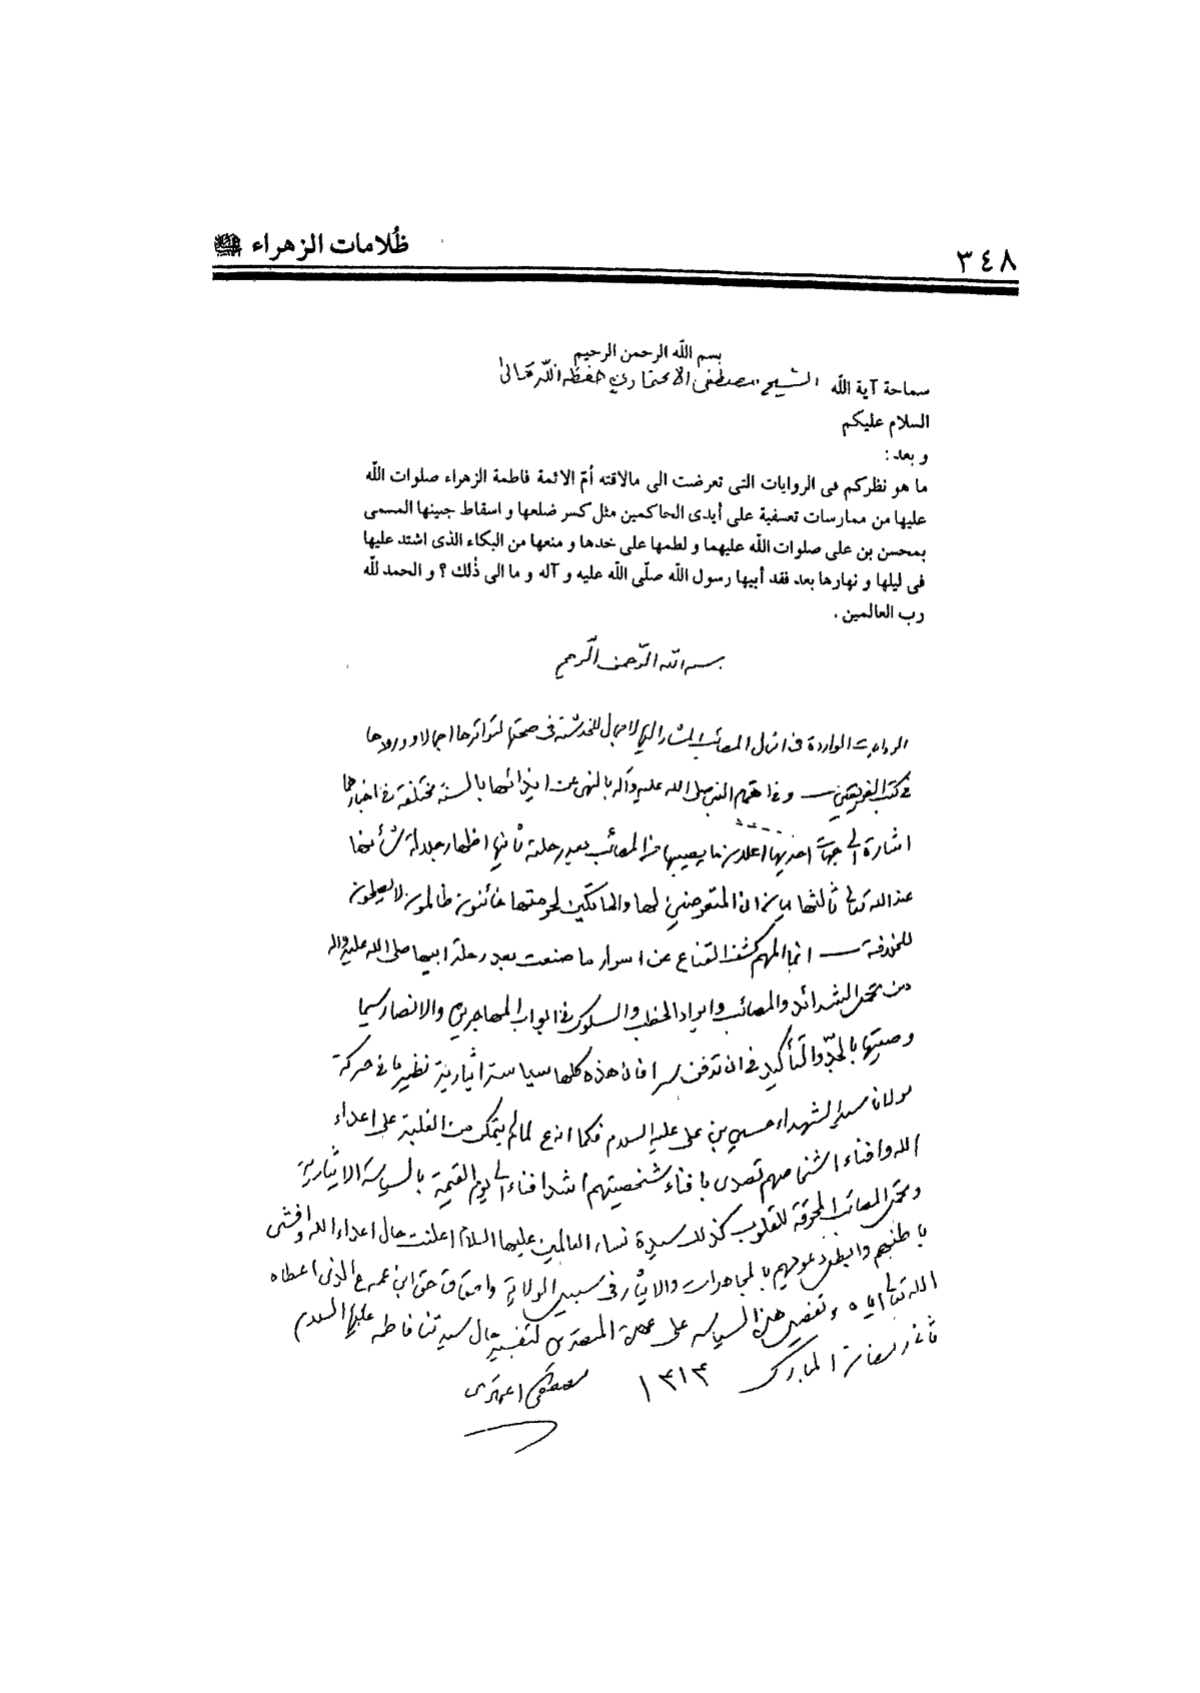 ٣٤٨
ظُلامات الزهراء
بسم اللّه الرحمن الرحيم
سماحة آية اللّه الشيخ مصطفى الاعتمادي حفظه اللّه تعالى
السلام عليكم
و بعد :
ما هو نظركم فى الروايات التى تعرضت الى مالاقته أمّ الائمة فاطمة الزهراء صلوات اللّه
عليها من ممارسات تعسفية على أيدى الحاكمين مثل كسر ضلعها و اسقاط جنينها المسمى
بمحسن بن على صلوات اللّه عليهما و لطمها على خدها و منعها من البكاء الذى اشتد عليها
فى ليلها و نهارها بعد فقد أبيها رسول اللّه صلّى اللّه عليه و آله و ما الى ذٰلك ؟ و الحمد للّه
رب العالمين .
بسم اللّه الرّحمن الرّحيم
الروايات الواردة فى امثال المصائب المشار اليها لا مجال للخدشة فى صحتها لتواترها اجمالا وورودها
فى كتب الفريقين و فى اهتمام النبى صلى الله عليه وآله بالنهى عن ايذائها بالسنة مختلفة فى اخبارهما
اشارة الى جهات احديها اعلان ما يصيبها من المصائب بعد رحلته ثانيها اظهار جلالة شأنها
عند الله تعالى ثالثها بيان ان المتعرضين لها والهاتكين لحرمتها خائنون ظالمون لا يصلحون
للخلافة انما المهم كشف القناع عن اسرار ما صنعت بعد رحلة ابيها صلى الله عليه واله
من تحمل الشدائد والمصائب وايراد الخطب والسلوك فى ابواب المهاجرين والانصار سيما
وصيتها بالجدّ والتأكيد فى ان تدفن سرا فان هذه كلها سياسة ايثارية نظير ما فى حركة
مولانا سيد الشهداء حسين بن على عليه السلام فكما انه ع لما لم يتمكن من الغلبة على اعداء
الله وافناء اشخاصهم تصدى بافناء شخصيتهم اشد افناء الى يوم القيمة بالسياسة الايثارية
وتحمل المصائب المحرقة للقلوب كذلك سيدة نساء العالمين عليها السلام اعلنت حال اعداء الله وافشى
باطنهم وابطل دعويهم بالمجاهدات والايثار فى سبيل الولاية واحقاق حق ابن عمه ع الذى اعطاه
الله تعالى اياه و تفصيل هذه السياسة على عهدة المتصدى لتفسير حال سيدتنا فاطمه عليها السلام
رمضان المبارك ١٤١٤ مصطفى اعتمادى